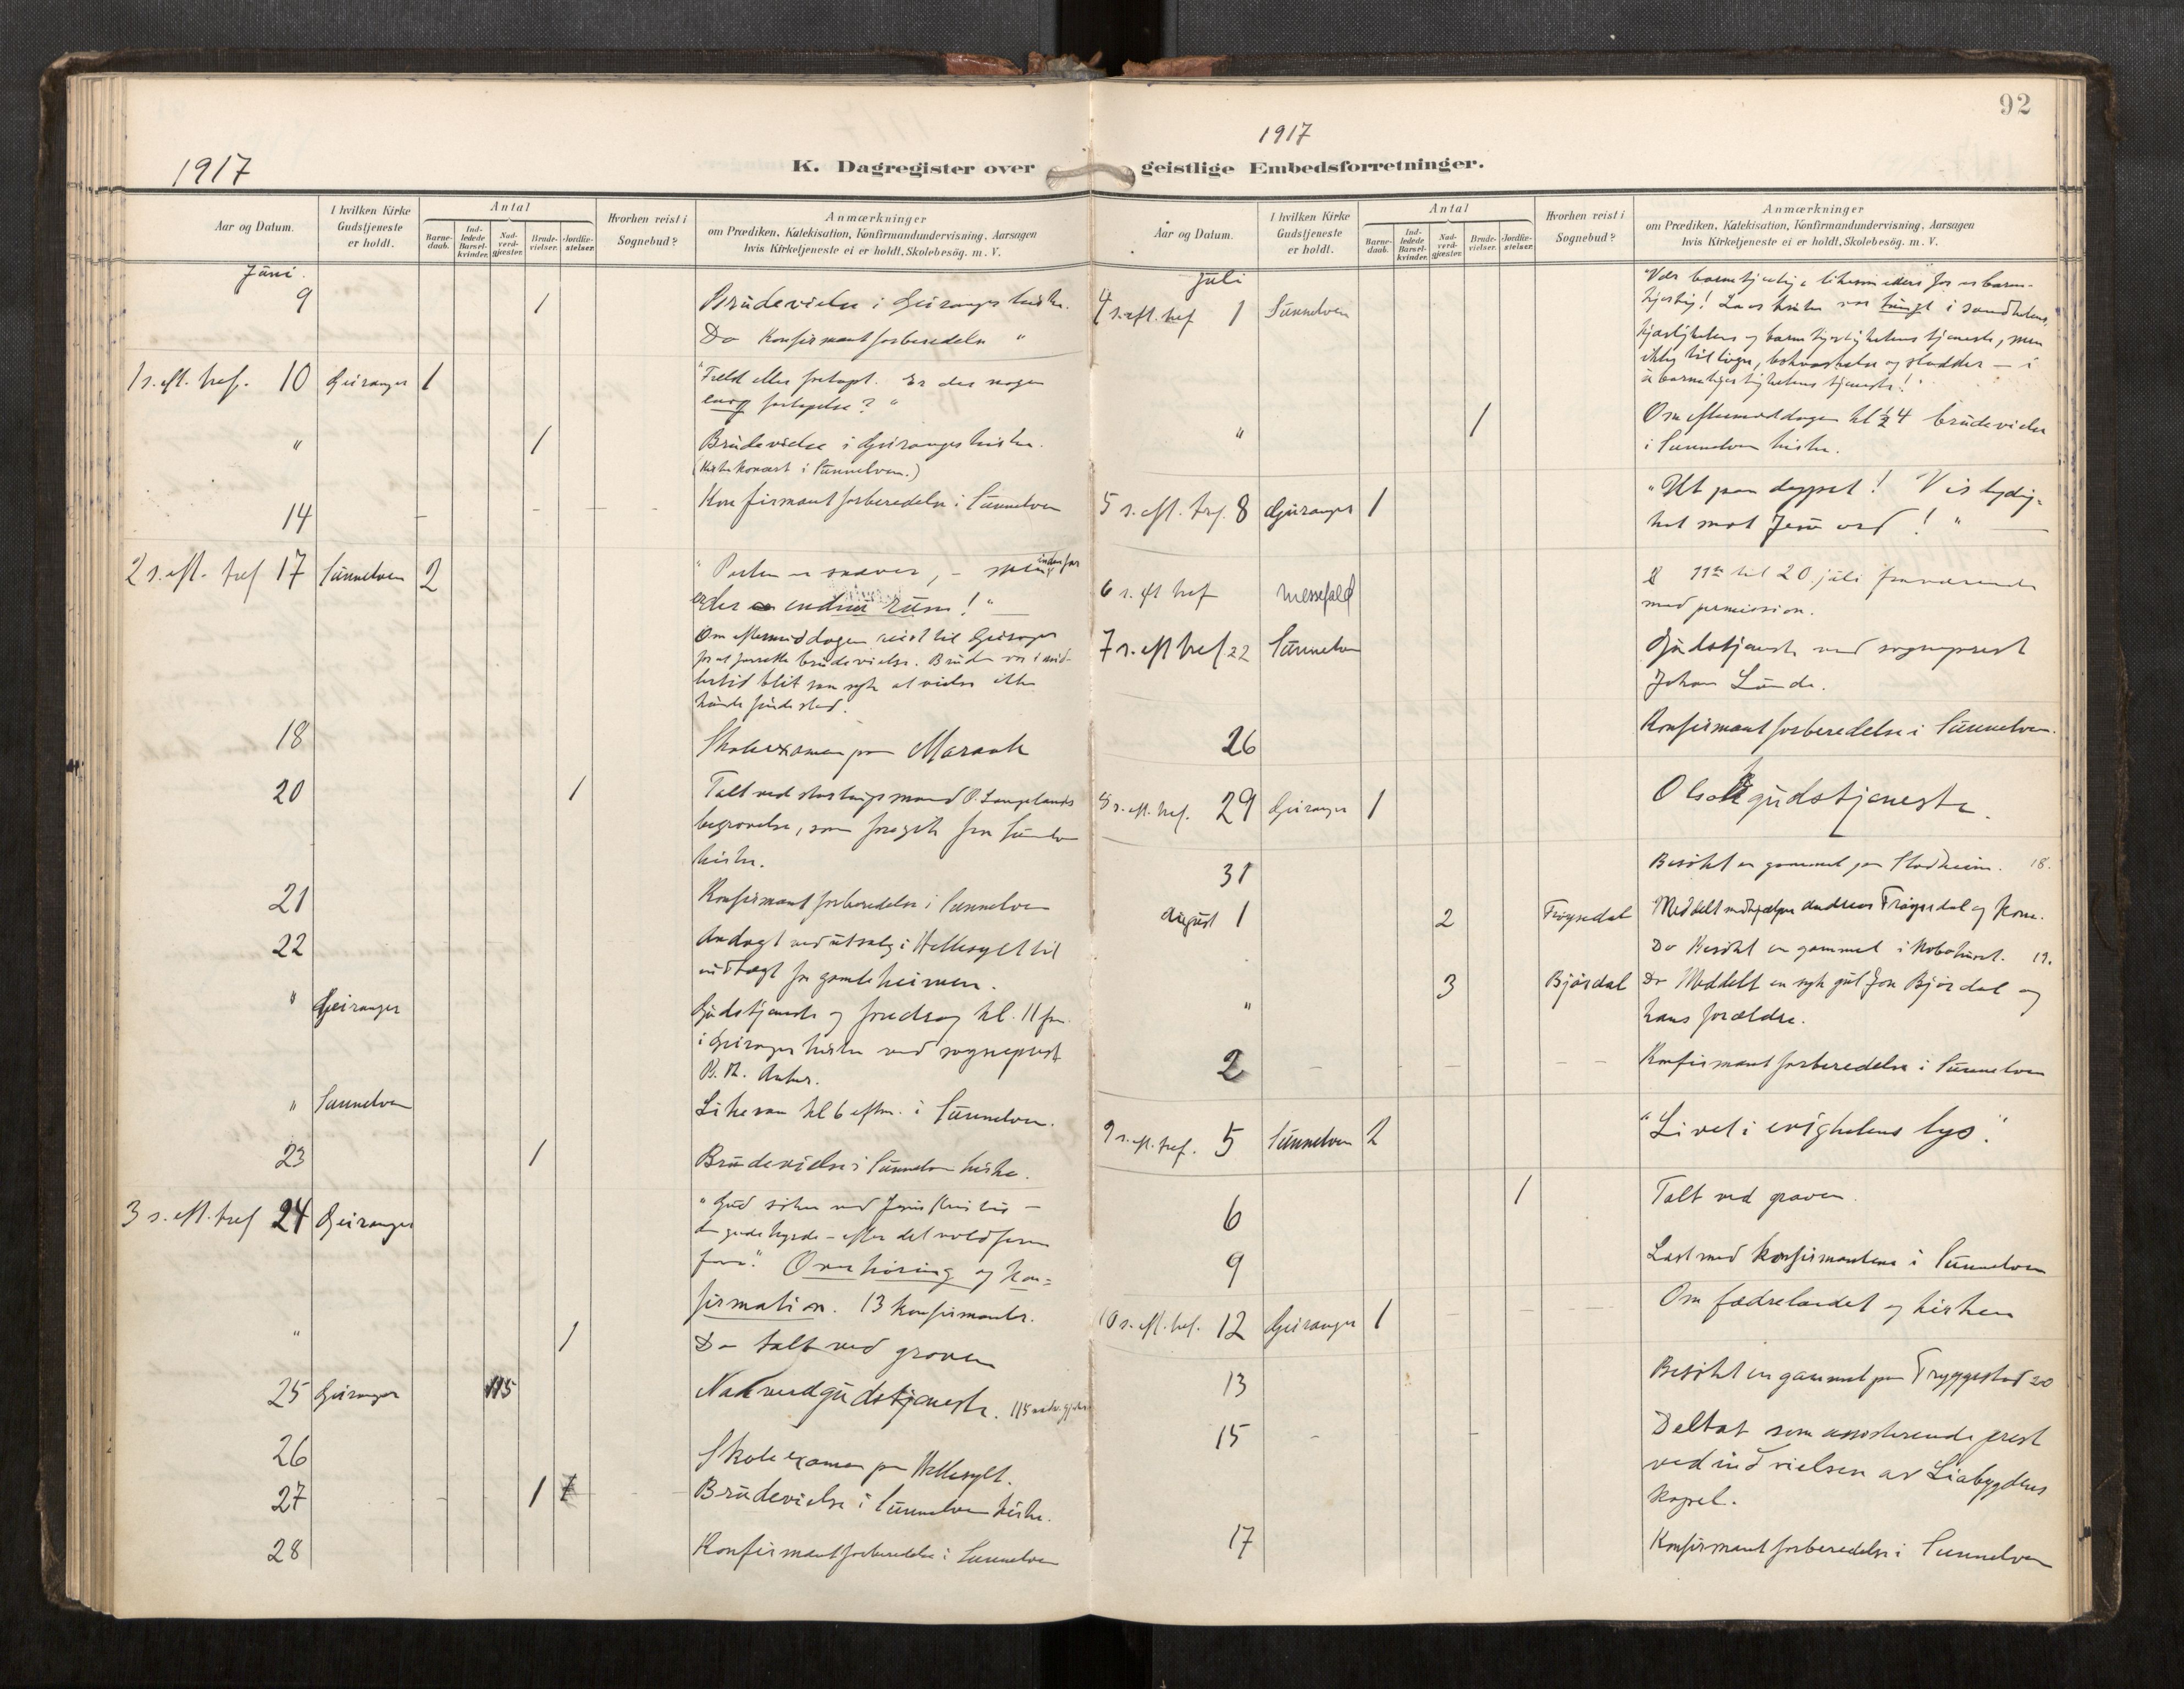 1917
K. Dagregister over
Aar og Datum.
I hvilken Kirke
Gudstjeneste
er holdt.
Antal
Barne-
daab.
Ind-
ledede
Barsel-
kvinder.
Nad-
verd-
gjæster.
Brude-
vielser.
Jordfæ-
stelser.
Hvorhen reist i
Sognebud?
Anmærkninger
om Prædiken, Katekisation, Konfirmandundervisning, Aarsagen
hvis Kirketjeneste ei er holdt, Skolebesøg. m. V.
Juni.
9 1 Brudevielse i Geiranger kirke.
Do Konfirmantforberedelse "
1 s. eft. tref. 10 Geiranger 1 "Frelst eller fortapt. Er der nogen
evig fortapelse? "
" 1 Brudevielse i Geiranger kirke.
(Kirkekoncert i Sunnelven.)
14 Konfirmantforberedelse i Sunnelven
2 s. eft. tref 17 Sunnelven 2 "Porten er snever, – men indenfor
er der endnu rum!"
Om eftermiddagen reist til Geiranger
for at forrette brudevielse. Bruden var imid-
lertid blit saa syk at vielse ikke
kunde finde sted.
18 Skoleexamen paa Maraak
20 1 Talt ved stortingsmand P. Langelands
begravelse, som foregik fra Sunnelven
kirke.
21 Konfirmantforberedelse i Sunnelven
22 Andagt ved utsalg i Hellesylt til
indtægt for gamleheimen.
" Geiranger Gudstjeneste og foredrag kl. 11 fm.
i Geiranger kirke ved sogneprest
" Sunnelven Likesaa kl 6 eftm. i Sunnelven.
23 1 Brudevielse i Sunnelven kirke.
3 s. eft. tref 24 Geiranger "Gud søker ved Jesus Kristus –
den gode hyrde – efter det
Overhøring og kon=
firmation. 13 konfirmanter.
" 1 Do talt ved graven
25 Geiranger 115 Nadverdgudstjeneste. 115 nadv.gjester
26 Skoleexamen paa Hellesylt.
27 1 Brudevielse i Sunnelven kirke.
28 Konfirmantforberedelse i Sunnelven
92
1917
geistlige Embedsforretninger.
Aar og Datum.
I hvilken Kirke
Gudstjeneste
er holdt.
Antal
Barne-
daab.
Ind-
ledede
Barsel-
kvinder.
Nad-
verd-
gjæster.
Brude-
vielser.
Jordfæ-
stelser.
Hvorhen reist i
Sognebud?
Anmærkninger
om Prædiken, Katekisation, Konfirmandundervisning, Aarsagen
hvis Kirketjeneste ei er holdt, Skolebesøg. m. V.
Juli
4 s. eft. tref 1 Sunnelven "Vær barmhjertige likesom eders far er barm-
hjertig! La os bruke vor tunge i sandhetens,
kjærlighetens og barmhjertighetens tjeneste, men
ikke til løgn, bakvaskelse og sladder – i
ubarmhjertighetens tjeneste!"
" 1 Om eftermiddagen kl ½ 4 brudevielse
i Sunnelven kirke.
5 s. eft. tref. 8 Geiranger 1 "Ut paa dypet! Vis lydig=
het mot Jesu ord! "
6 s. eft tref messefald 11te til 20. juli fraværende
med permission.
7 s. eft tref 22 Sunnelven Gudstjeneste ved sogneprest
Johan Lunde.
26 Konfirmantforberedelse i Sunnelven.
8 s. eft. tref. 29 Geiranger 1 Olsokgudstjeneste.
31 Besøkt en gammel paa Stadheim. 18.
August 1 2 Frøysedal Meddelt medhjælper Andreas Frøysedal og kone.
Do Besøkt en gammel i 19.
" 3 Bjørdal Do Meddelt en syk gut Jon Bjørdal og
hans forældre.
2 Konfirmantforberedelse i Sunnelven
9 s. eft. tref. 5 Sunnelven 2 "Livet i evighetens lys."
6 1 Talt ved graven.
9 Læst med konfirmantene i Sunnelven
10 s. eft. tref. 12 Geiranger 1 Om fædrelandet og kirken
13 Besøkt en gammel paa Tryggestad 20
15 Deltat som assisterende prest
ved indvielsen av Liabygdens
kapel.
17 Konfirmantforberedelse i Sunnelven